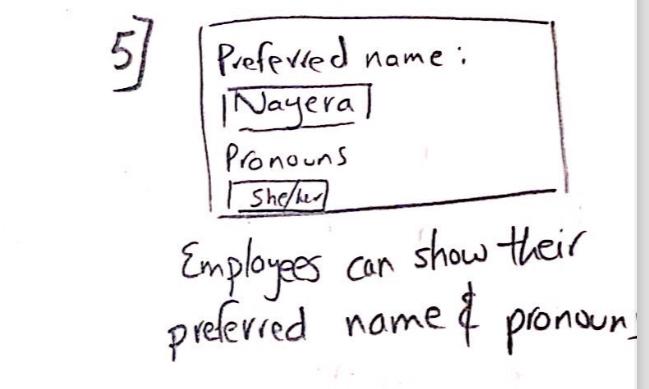 5]
Preferred name :
Nayera
Pronouns
She/her
Employees can show their
preferred name & pronoun